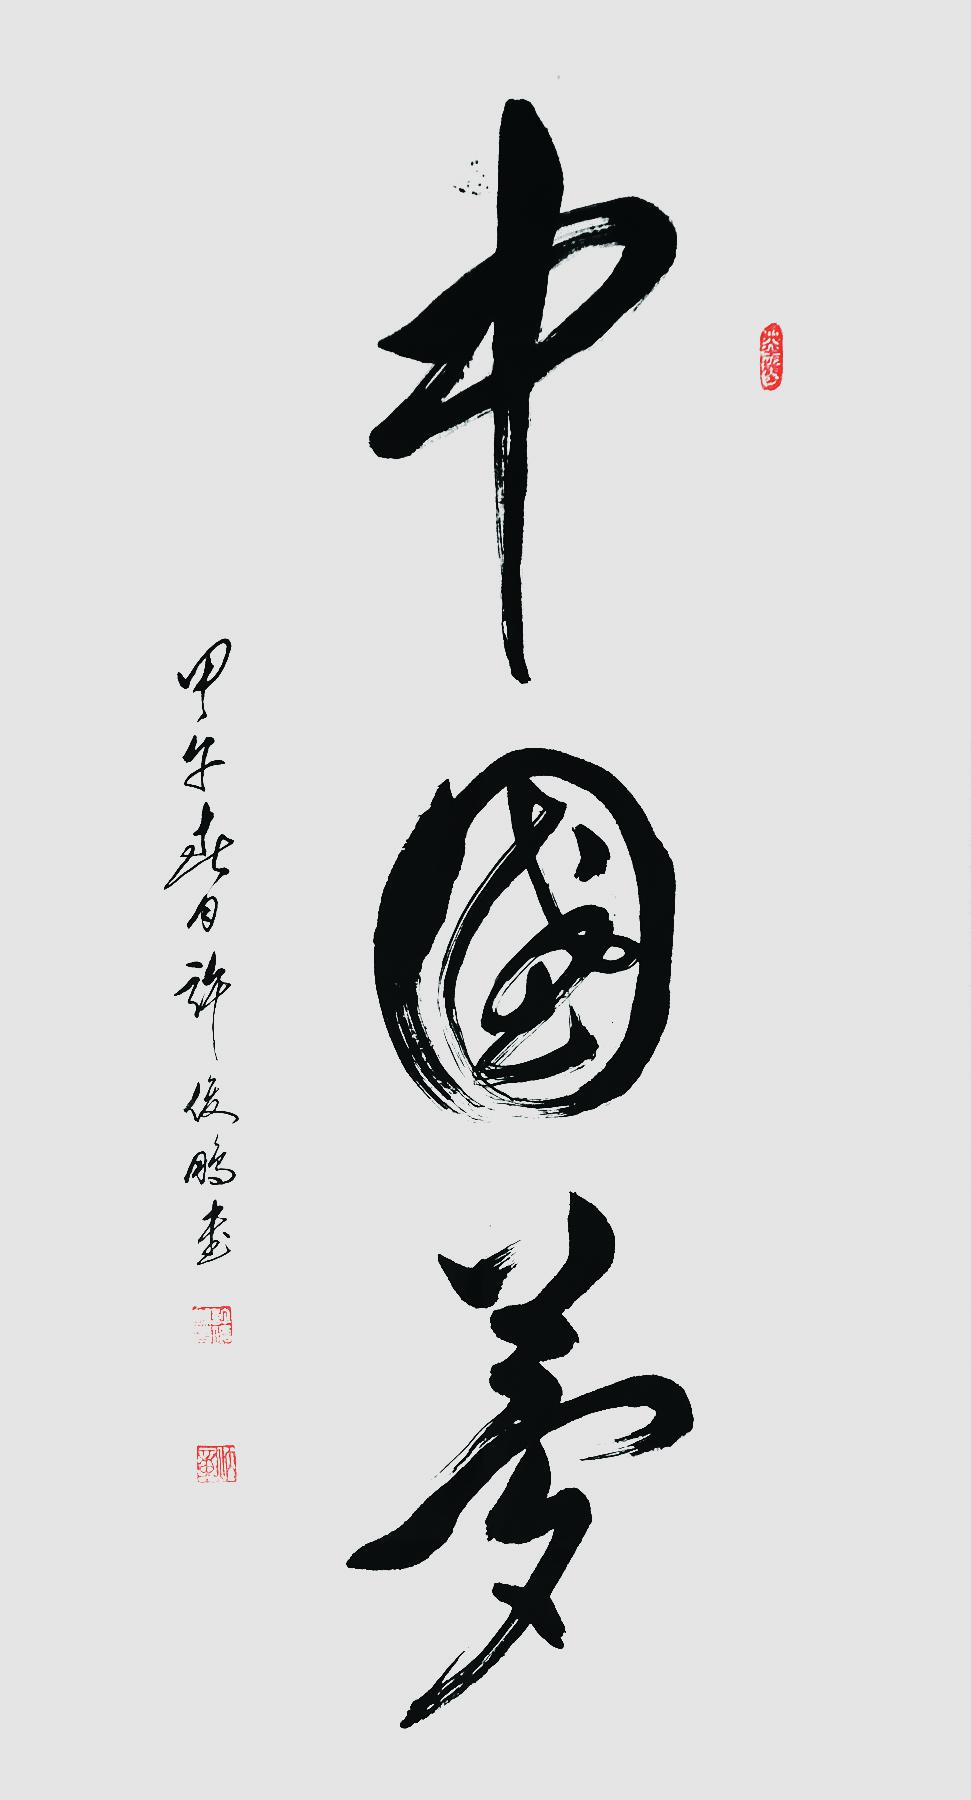 中國夢
甲午春月許俊鵬書